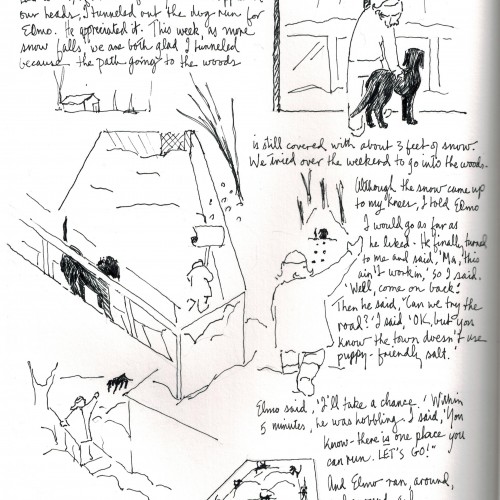 our heads, I tunneled out the dog run for
Elmo. He appreciated it. This week as more
snow falls, we are both glad I tunneled
because the path going to the woods
is still covered with about 3 feet of snow.
We tried over the weekend to go into the woods.
Although the snow came up
to my knees, I told Elmo
I would go as far as
he liked. He finally turned
to me and said, 'Ma, this
ain't workin,' so I said.
'Well, come on back.'
Then he said, 'Can we try the
road?' I said, 'OK, but you
know the town doesn't use
puppy-friendly salt.'
Elmo said, 'I'll take a chance.' Within
5 minutes, he was hobbling. I said, 'You
know - there is one place you
can run. LET'S GO!"
And Elmo ran, around,